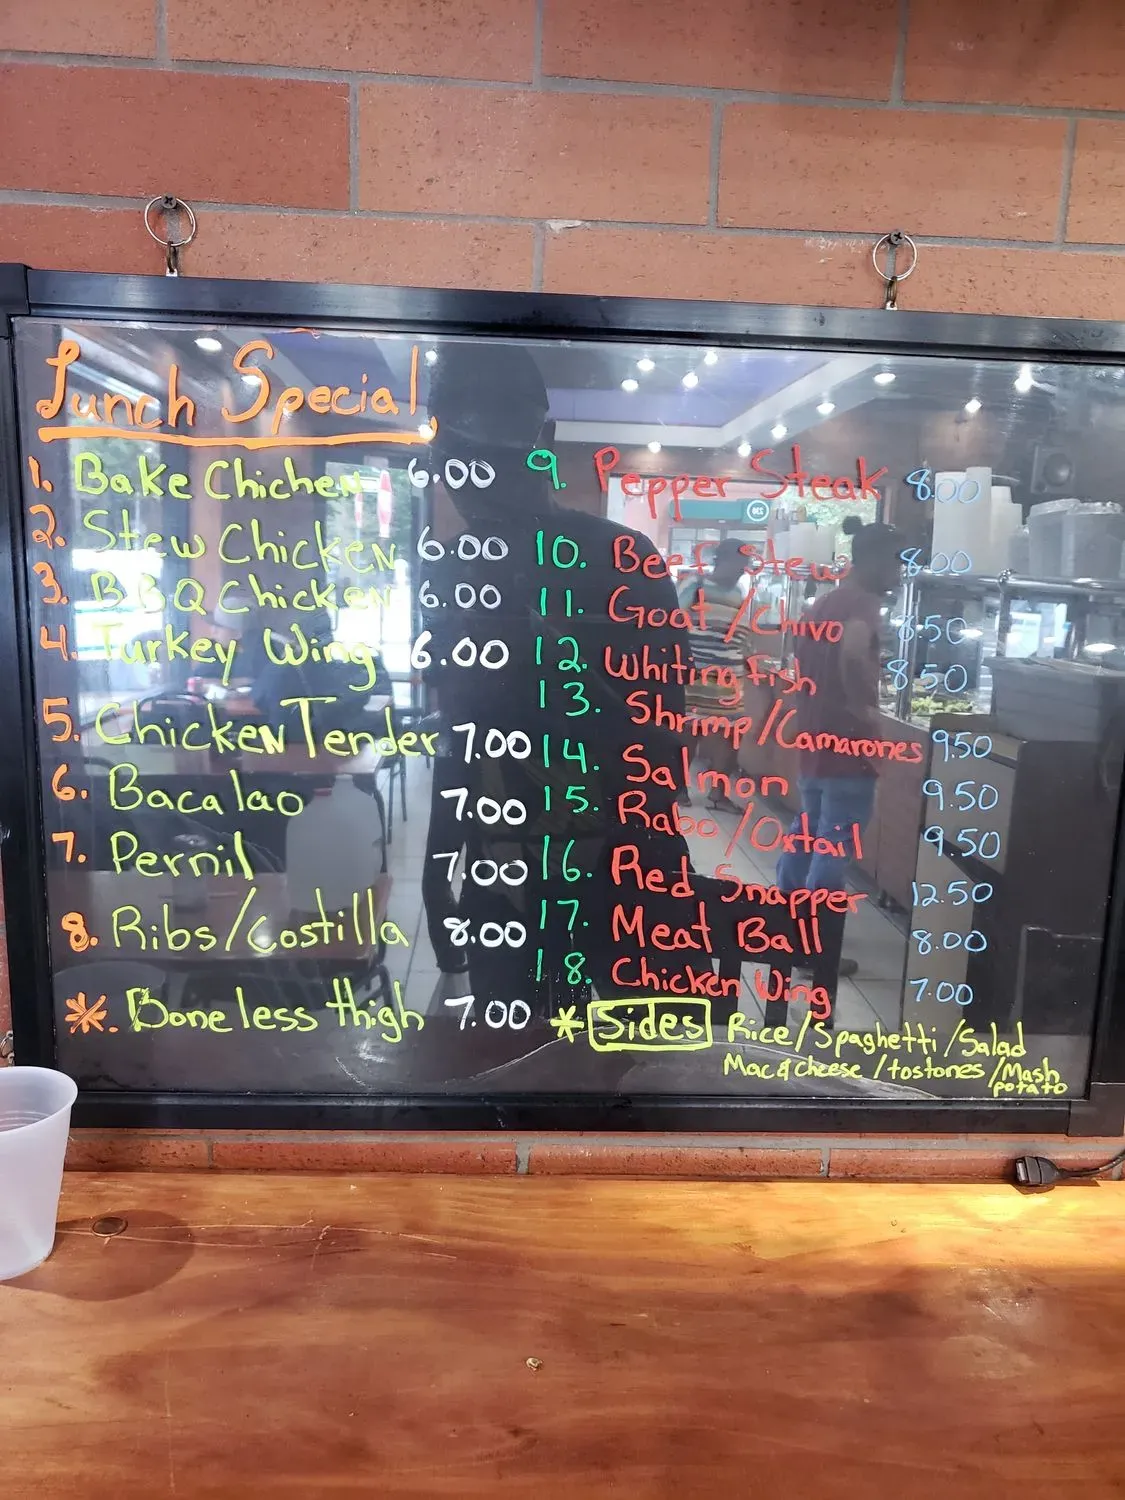 Lunch Special
1. Bake Chichen 6.00
2. Stew Chicken 6.00
3. BBQ Chicken 6.00
4. Turkey Wing 6.00
5. Chicken Tender 7.00
6. Bacalao 7.00
7. Pernil 7.00
8. Ribs/Costilla 8.00
*. Boneless thigh 7.00
9. Pepper Steak 8.00
10. Beef Stew 8.00
11. Goat/Chivo
12. Whiting Fish 8.50
13. Shrimp/Camarones 9.50
14. Salmon 9.50
15. Rabo/Oxtail 9.50
16. Red Snapper 12.50
17. Meat Ball 8.00
18. Chicken Wing 7.00
* Sides Rice/Spaghetti/Salad
Mac & cheese/tostones/Mash
potato